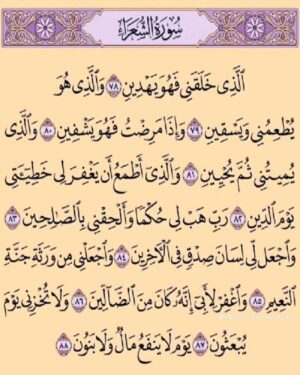 سُورَةُ الشُّعَرَاءِ
الَّذِي خَلَقَنِي فَهُوَ يَهْدِينِ ٧٨ وَالَّذِي هُوَ
يُطْعِمُنِي وَيَسْقِينِ ٧٩ وَإِذَا مَرِضْتُ فَهُوَ يَشْفِينِ ٨٠ وَالَّذِي
يُمِيتُنِي ثُمَّ يُحْيِينِ ٨١ وَالَّذِي أَطْمَعُ أَن يَغْفِرَ لِي خَطِيئَتِي
يَوْمَ الدِّينِ ٨٢ رَبِّ هَبْ لِي حُكْمًا وَأَلْحِقْنِي بِالصَّالِحِينَ ٨٣
وَاجْعَل لِّي لِسَانَ صِدْقٍ فِي الْآخِرِينَ ٨٤ وَاجْعَلْنِي مِن وَرَثَةِ جَنَّةِ
النَّعِيمِ ٨٥ وَاغْفِرْ لِأَبِي إِنَّهُ كَانَ مِنَ الضَّالِّينَ ٨٦ وَلَا تُخْزِنِي يَوْمَ
يُبْعَثُونَ ٨٧ يَوْمَ لَا يَنفَعُ مَالٌ وَلَا بَنُونَ ٨٨